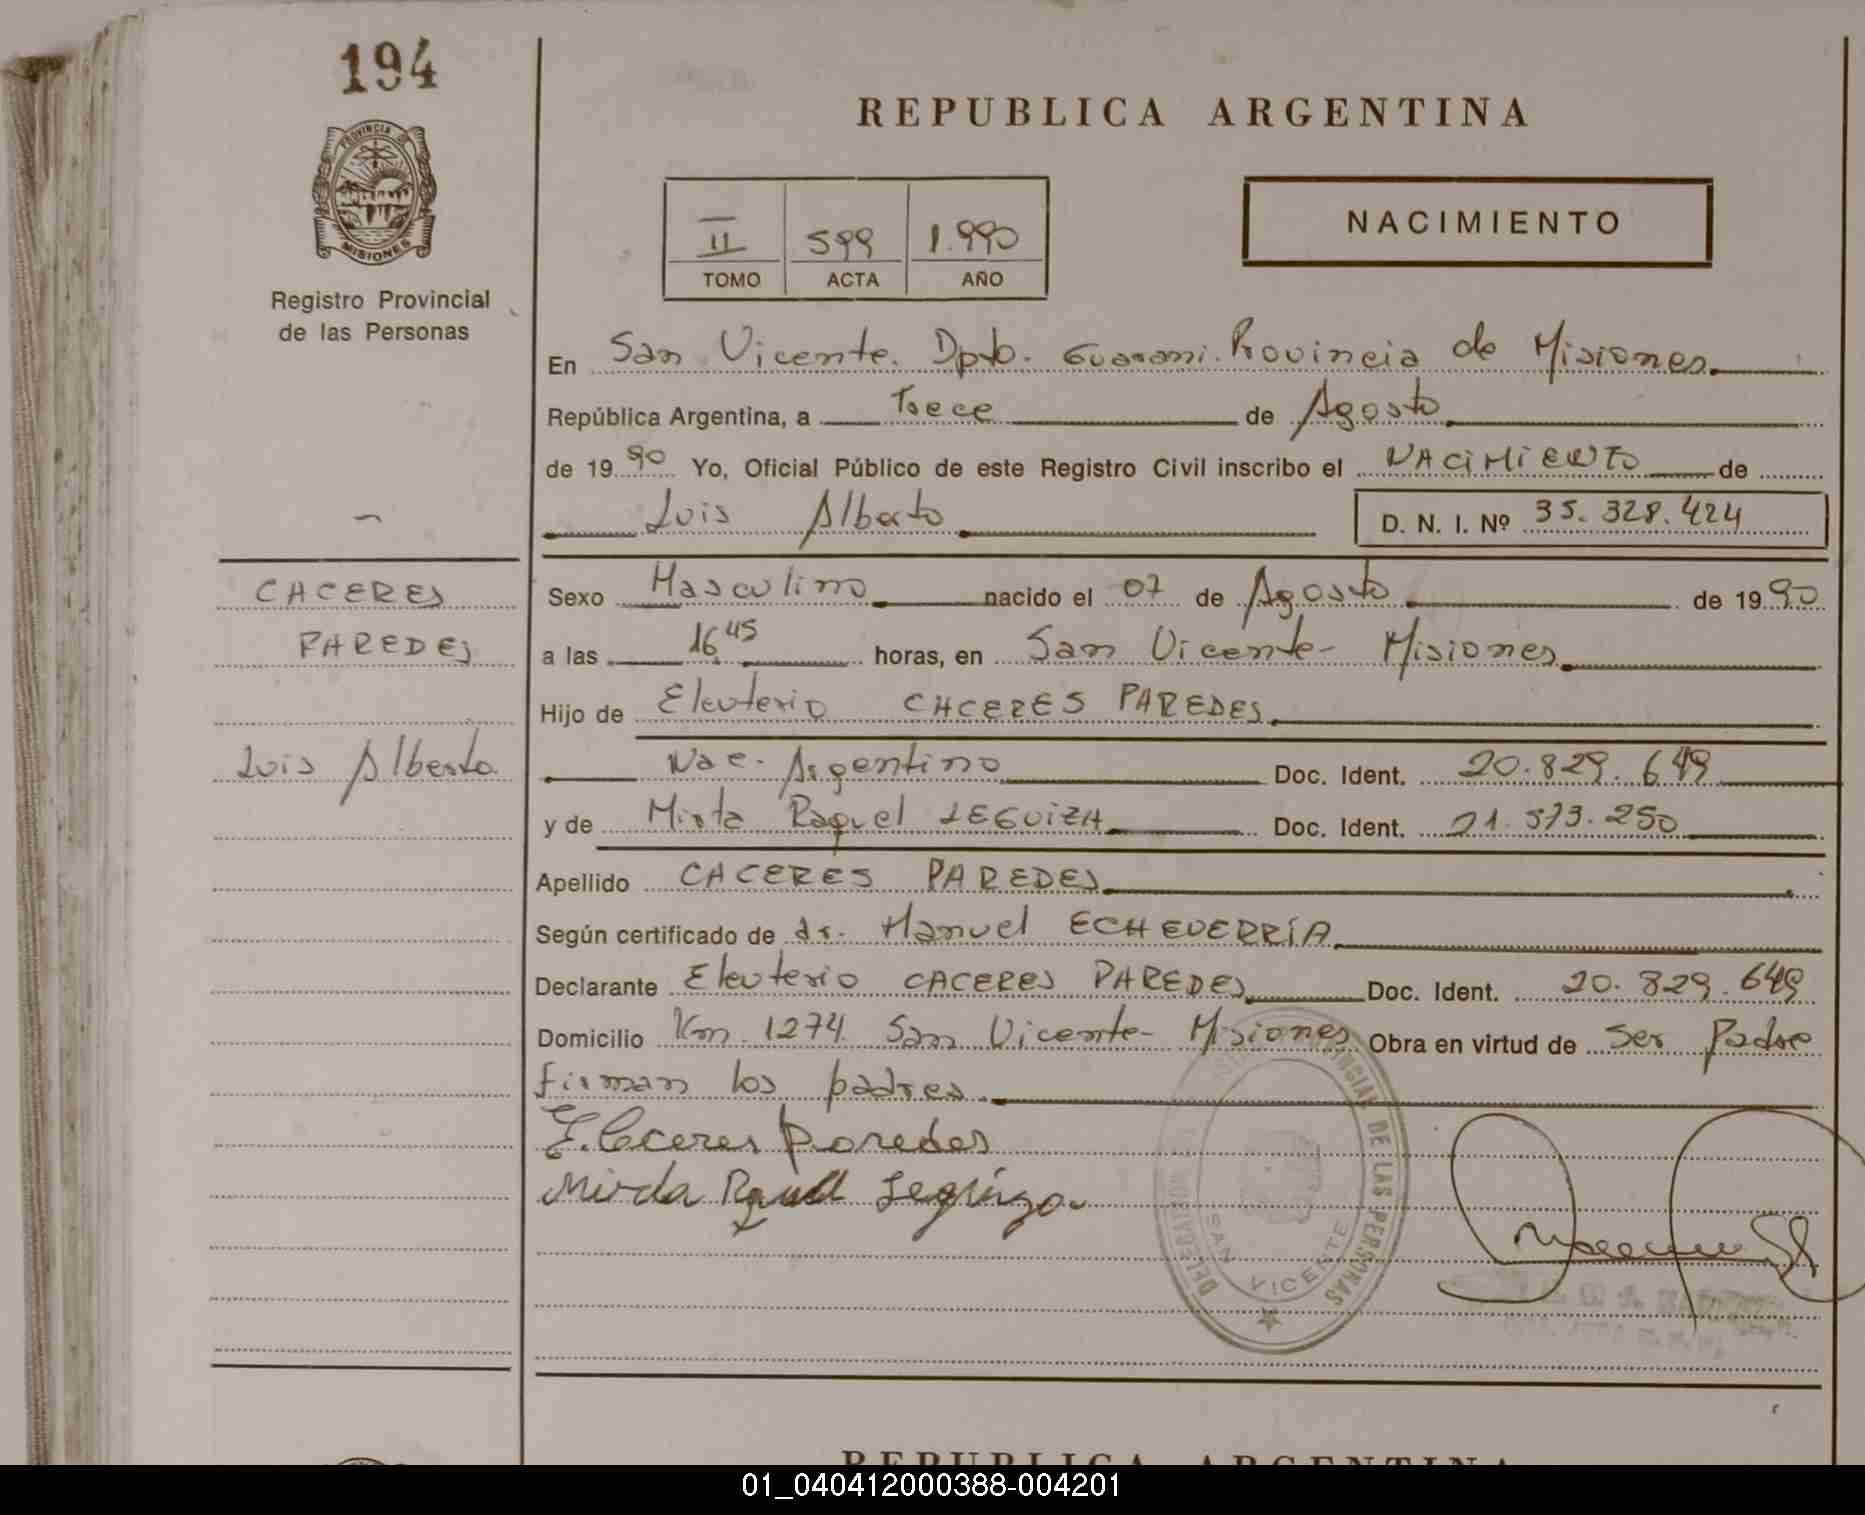 194
PROVINCIA D
MISIONES
Registro Provincial
de las Personas
REPUBLICA ARGENTINA
II 599 1.990
TOMO ACTA AÑO
NACIMIENTO
En San Vicente. Dpto. Guarani. Provincia de Misiones
República Argentina, a Trece de Agosto
de 1990 Yo, Oficial Público de este Registro Civil inscribo el NACIMIENTO de
Luis Alberto
D. N. I. Nº 35.328.424
CACERES
PAREDES
Luis Alberto
Sexo Masculino nacido el 07 de Agosto de 1990
a las 16.45 horas, en San Vicente - Misiones
Hijo de Eleuterio CACERES PAREDES
Nac. Argentino Doc. Ident. 20.829.649
y de Mirta Raquel LEGUIZA Doc. Ident. 21.573.250
Apellido CACERES PAREDES
Según certificado de dr. Manuel ECHEVERRÍA
Declarante Eleuterio CACERES PAREDES Doc. Ident. 20.829.649
Domicilio Km. 1274. San Vicente - Misiones Obra en virtud de ser Padre
firman los padres.
E. Caceres Paredes
Mirda Raquel Leguiza
DELEGACION
DE LAS PERSONAS
SAN VICENTE
REPUBLICA ARGENTINA
01_040412000388-004201